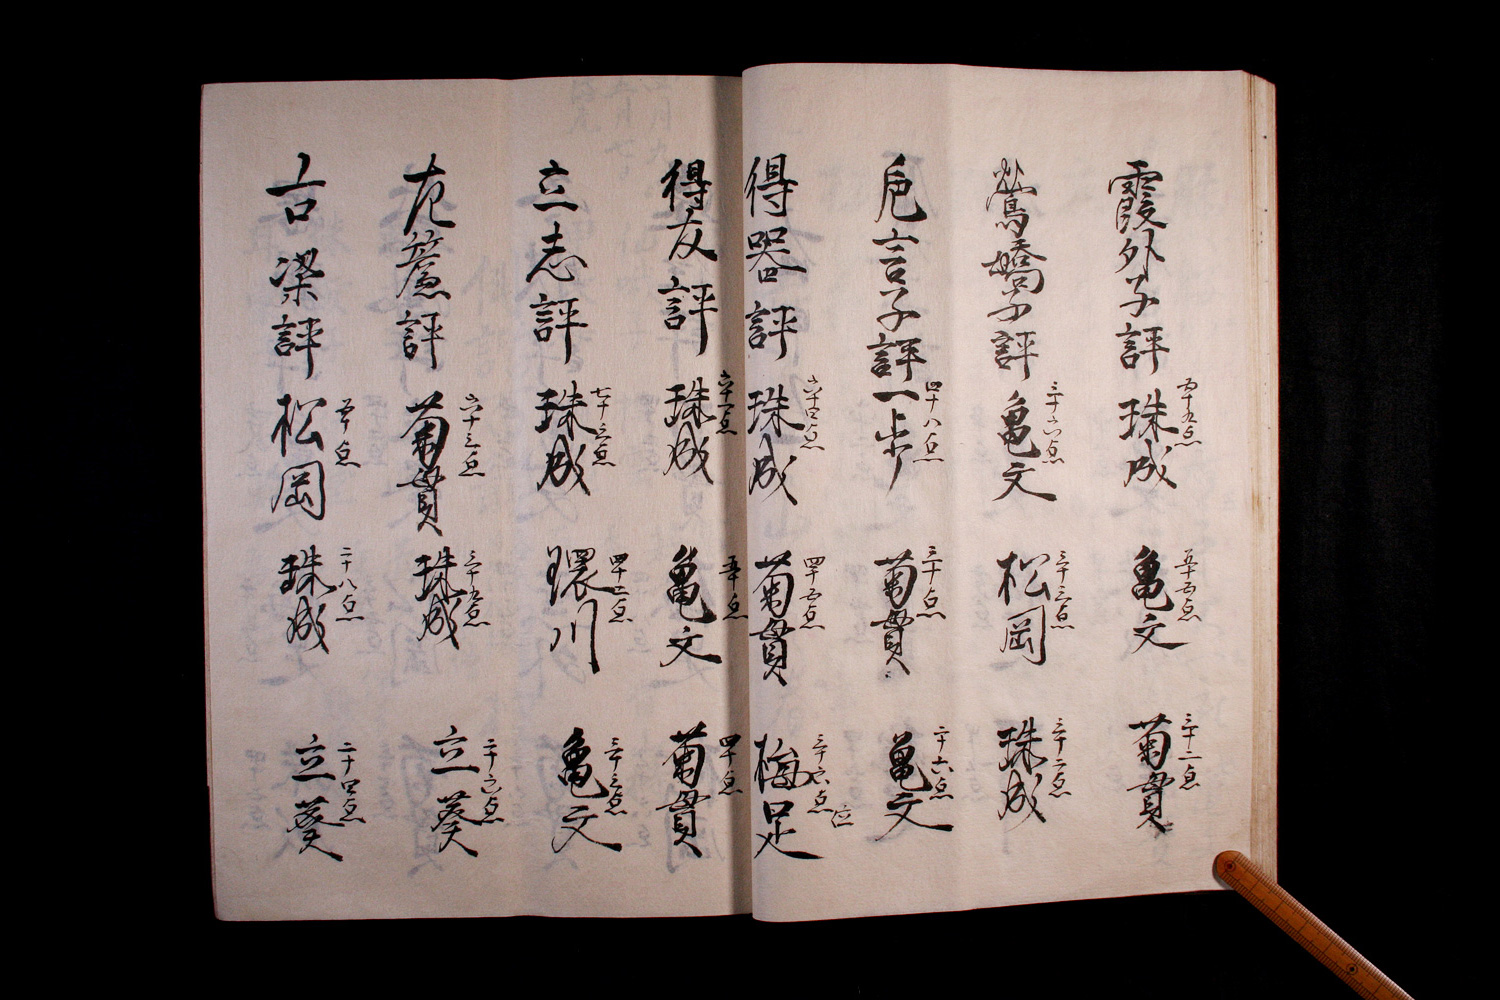 霞外子評 五十九点 珠成 五十五点 亀文 三十二点 菊貫
鶯嬌子評 三十六点 亀文 三十三点 松岡 三十二点 珠成
巵言子評 四十八点 一歩 三十点 菊貫 二十六点 亀文
得器評 六十四点 珠成 四十五点 菊貫 三十六点 梅足 位
得友評 六十一点 珠成 五十点 亀文 四十点 菊貫
立志評 七十三点 珠成 四十二点 環川 三十三点 亀文
菊貫 六十三点 珠成 三十九点 立葵 二十六点
吉梁評 五十点 松岡 二十八点 珠成 二十四点 立葵